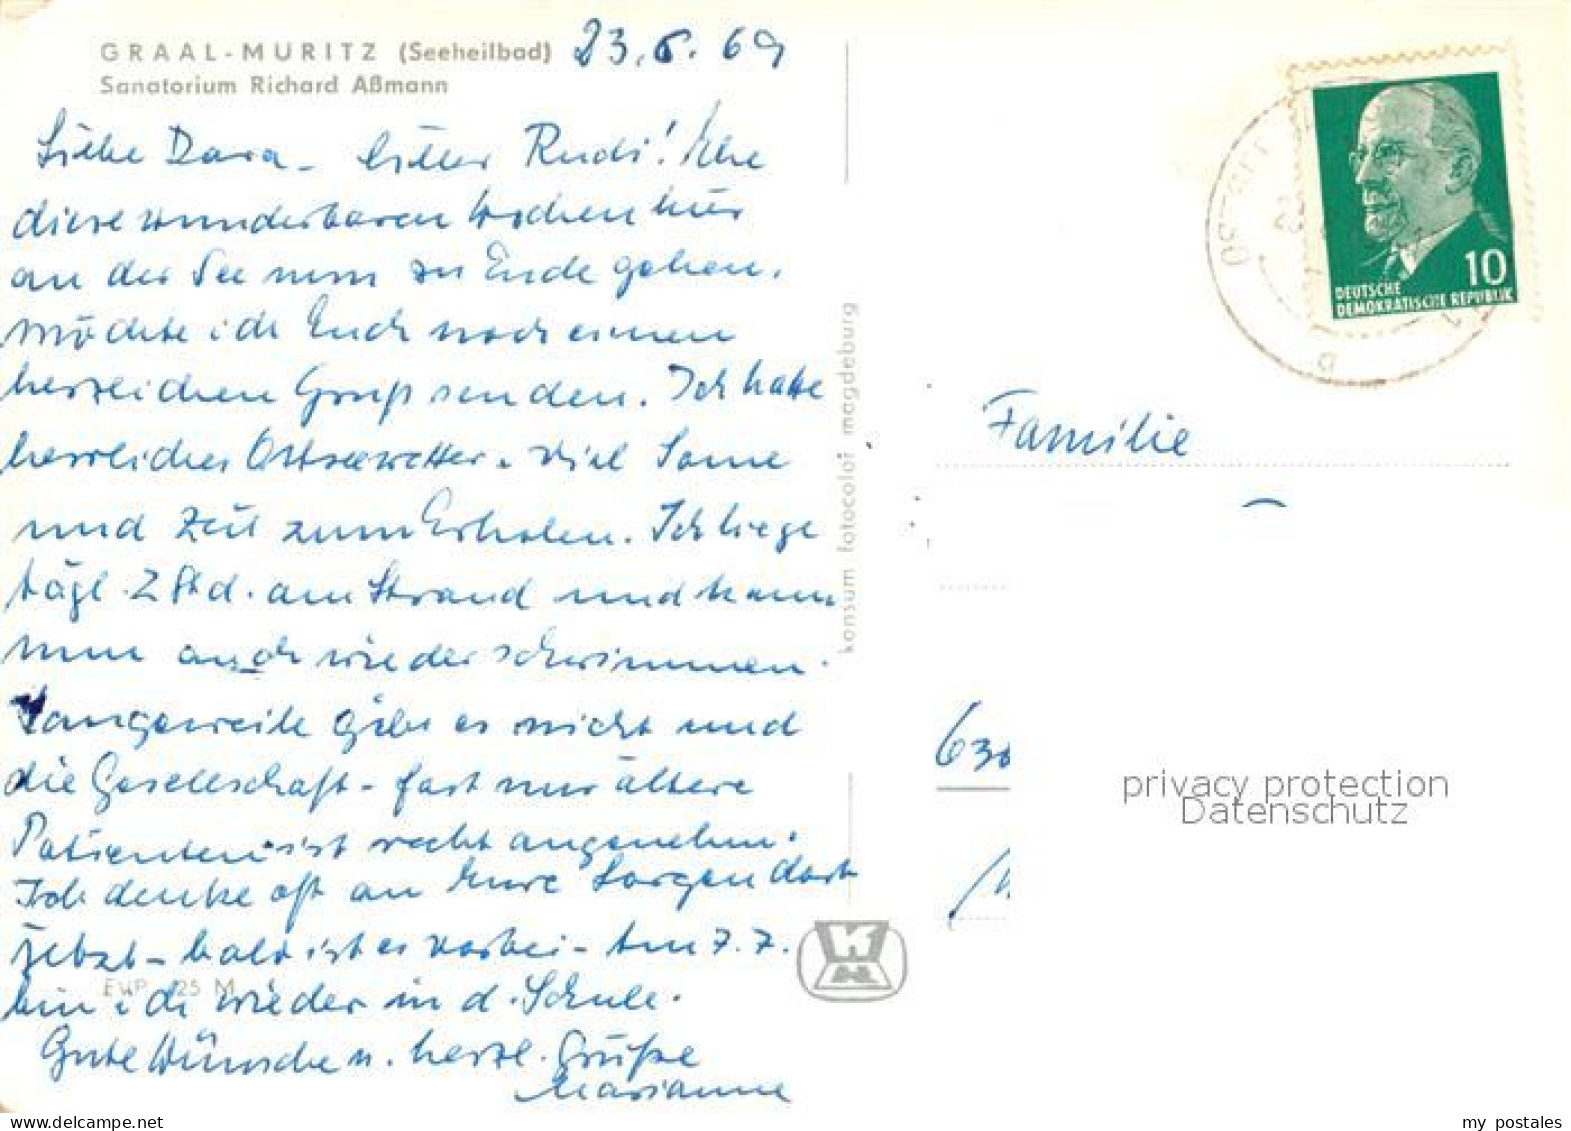 GRAAL-MÜRITZ (Seeheilbad) 23.6.69
Sanatorium Richard Aßmann
Liebe Dora - lieber Rudi! Ehe
diese wunderbaren Wochen hier
an der See nun zu Ende gehen,
möchte ich Euch noch einen
herzlichen Gruß senden. Ich hatte
herrliches Ostseewetter, viel Sonne
und Zeit zum Erholen. Ich liege
tägl. 2 Std. am Strand und kann
nun auch wieder schwimmen.
Langeweile gibt es nicht und
die Gesellschaft - fast nur ältere
Patienten ist recht angenehm.
Ich denke oft an Eure Sorgen dort
jetzt - bald ist es vorbei - Am 7.7.
bin ich wieder in d. Schule.
Gute Wünsche u. herzl. Grüße
Marianne
EVP 25 M
konsum fotocolor magdeburg
10
DEUTSCHE
DEMOKRATISCHE REPUBLIK
Familie
630
privacy protection
Datenschutz
my_postales